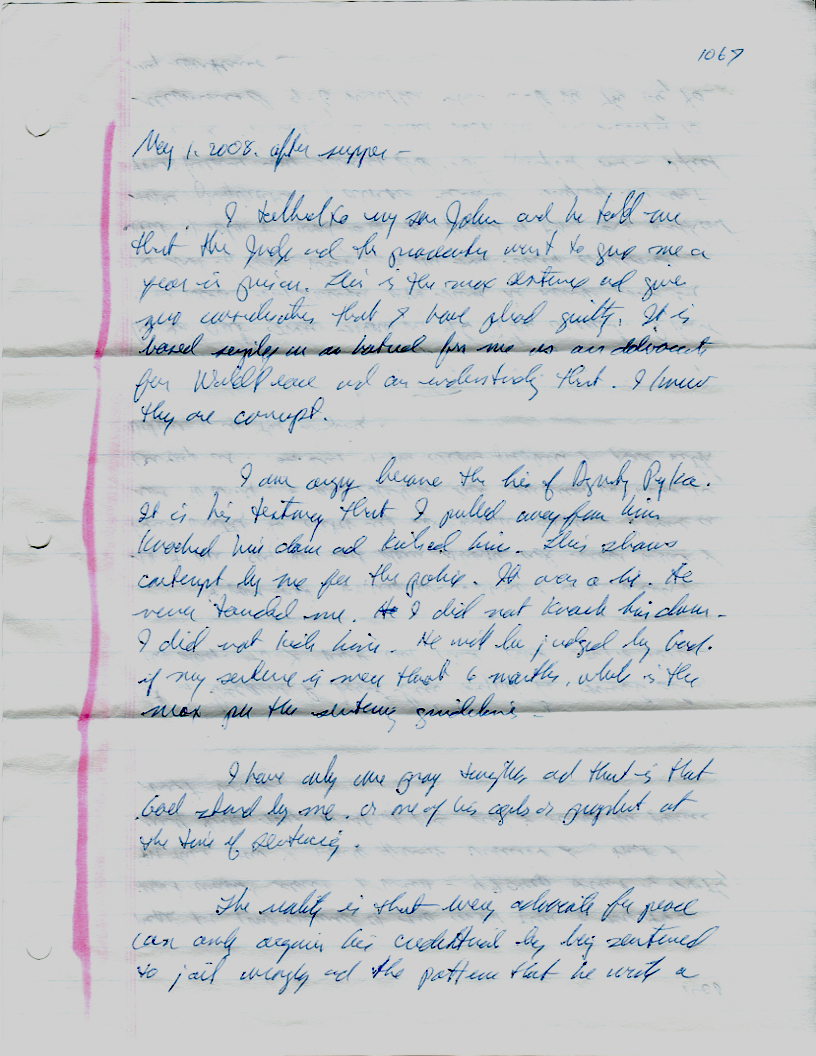 1067
May 1. 2008. after supper -
I talked to my son John and he told me
that the Judge ad the prosecutor want to give me a
year in prison. This is the max sentence ad give
zero consideration that I have plead guilty. It is
based simply on an hatred for me as an advocate
for World Peace ad an understanding that. I know
they are corrupt.
I am angry because the lies of Deputy Pyka.
It is his testimony that I pulled away from him
knocked him down ad kicked him. This shows
contempt by me for the police. It was a lie. He
never touched me. He I did not knock him down -
I did not kick him. He will be judged by God.
if my sentence is more that 6 months, which is the
max per the sentencing guidelines -
I have only one pray tonight ad that is that
God stand by me. or one of his angels or prophet at
the time of sentencing.
The reality is that every advocate for peace
can only acquire his credential by being sentenced
to jail wrongly ad the pattern that he write a